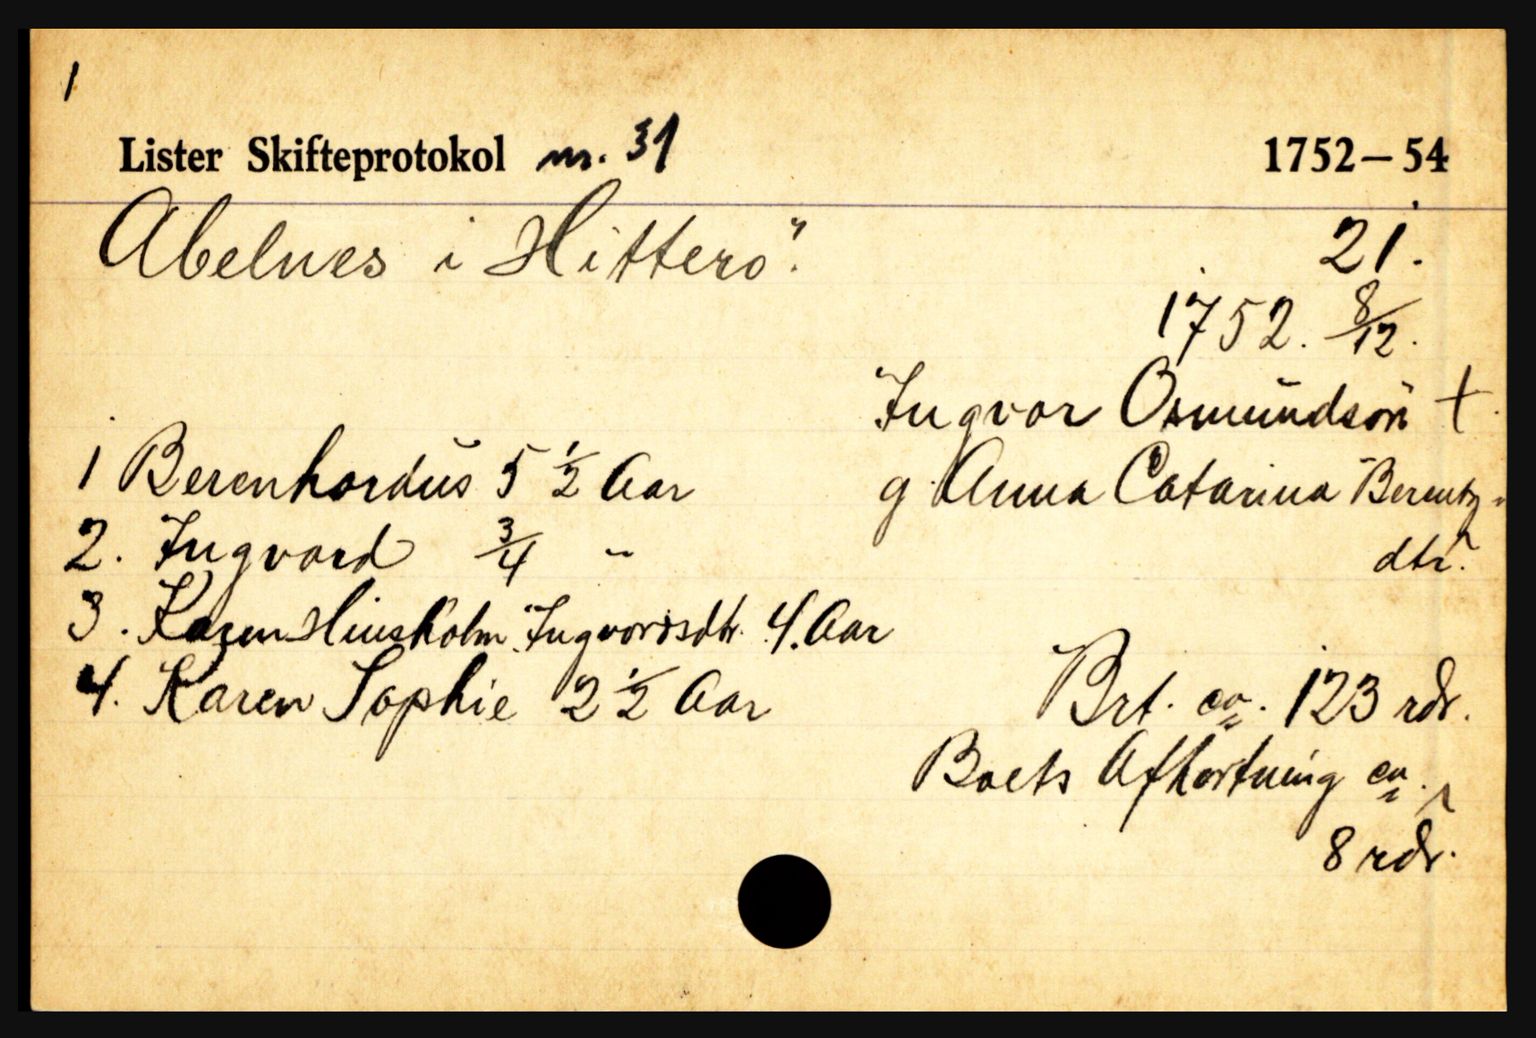 1
Lister Skifteprotokol nr. 31 1752-54
Abelnes i Hitterö. 21.
1752. 8/12.
Ingvor Osmundsön +
g. Anna Catarina Berentz-
dtr.
1 Berenhardus 5 1/2 Aar
2. Ingvard 3/4 "
3. Karen Hinsholm Ingvorsdtr. 4. Aar
4. Karen Sophie 2 1/2 Aar
Brt. ca. 123 rdr.
Boets Afkortning ca.
8 rdr.